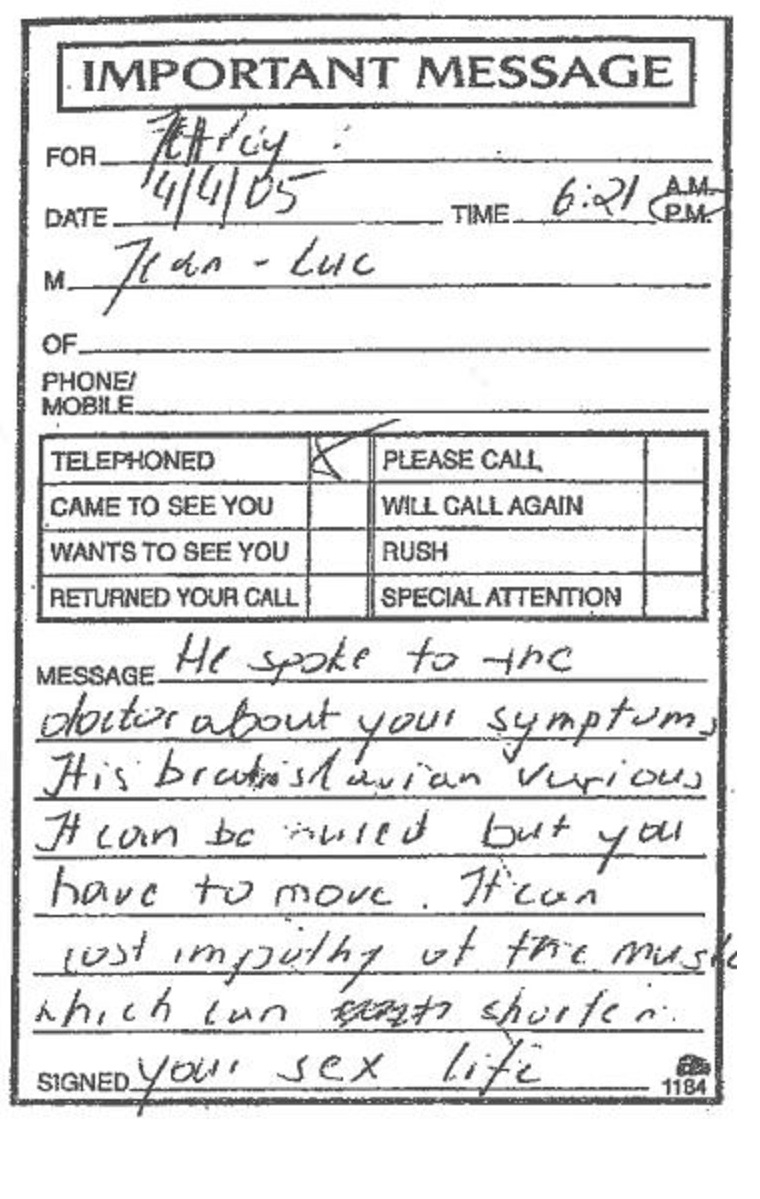 IMPORTANT MESSAGE
FOR
DATE 4/4/05 TIME 6:21 A.M. P.M.
M Jean - Luc
OF
PHONE/
MOBILE
TELEPHONED PLEASE CALL
CAME TO SEE YOU WILL CALL AGAIN
WANTS TO SEE YOU RUSH
RETURNED YOUR CALL SPECIAL ATTENTION
MESSAGE He spoke to the
doctor about your symptoms
It is
It can be but you
have to move. It can
of the
which can shorten
SIGNED your sex life
1184